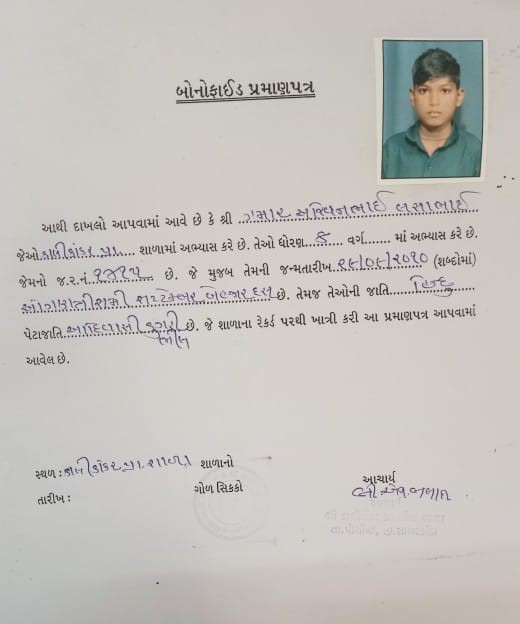 બોનોફાઈડ પ્રમાણપત્ર
આથી દાખલો આપવામાં આવે છે કે શ્રી ..ગમાર અશ્વિનભાઈ લસાભાઈ
જેઓ.કાળીકાંકર.પ્રા.... શાળામાં અભ્યાસ કરે છે. તેઓ ધોરણ..૮... વર્ગ....... માં અભ્યાસ કરે છે.
જેમનો જ.ર.નં.૧૩૧૫...... છે. જે મુજબ તેમની જન્મતારીખ.૨૯/૦૯/૨૦૧૦ (શબ્દોમાં)
ઓગણત્રીસમી સપ્ટેમ્બર બેહજાર દસ છે. તેમજ તેઓની જાતિ.....હિન્દુ.........
પેટાજાતિ..આદિવાસી ડુંગરી છે. જે શાળાના રેકર્ડ પરથી ખાત્રી કરી આ પ્રમાણપત્ર આપવામાં
ભીલ
આવેલ છે.
સ્થળ : કાળીકાંકર.પ્રા.શાળા શાળાનો
તારીખ : ગોળ સિક્કો
આચાર્ય
તા.પોશીના, જી.સાબરકાંઠા